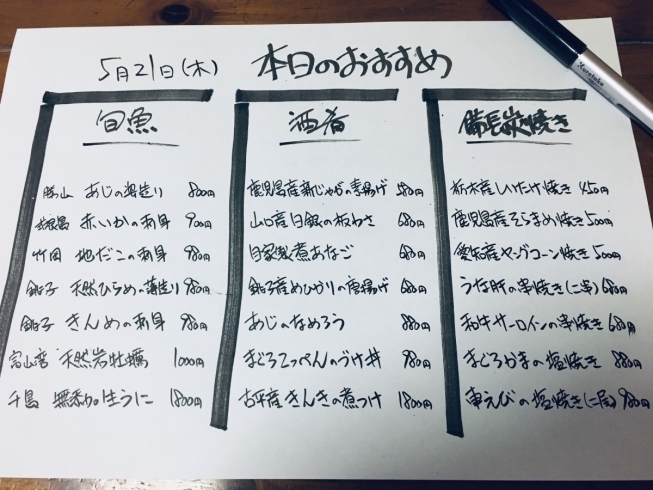 5月21日(木) 本日のおすすめ
旬魚
勝山 あじの姿造り 800円
赤いかの刺身 900円
竹岡 地だこの刺身 980円
銚子 天然ひらめの薄造り 980円
銚子 きんめの刺身 980円
富山湾 天然岩牡蠣 1000円
千島 無添加生うに 1800円
酒肴
鹿児島産新じゃがの素揚げ 580円
山口産白銀の板わさ 680円
自家製煮あなご 680円
銚子産めひかりの唐揚げ 680円
あじのなめろう 880円
まぐろてっぺんのづけ丼 980円
古平産きんきの煮つけ 1800円
備長炭焼き
栃木産しいたけ焼き 450円
鹿児島産そらまめ焼き 500円
愛知産ヤングコーン焼き 500円
うな肝の串焼き(二串) 680円
和牛サーロインの串焼き 680円
まぐろかまの塩焼き 880円
車えびの塩焼き(二尾) 980円
Kuretake